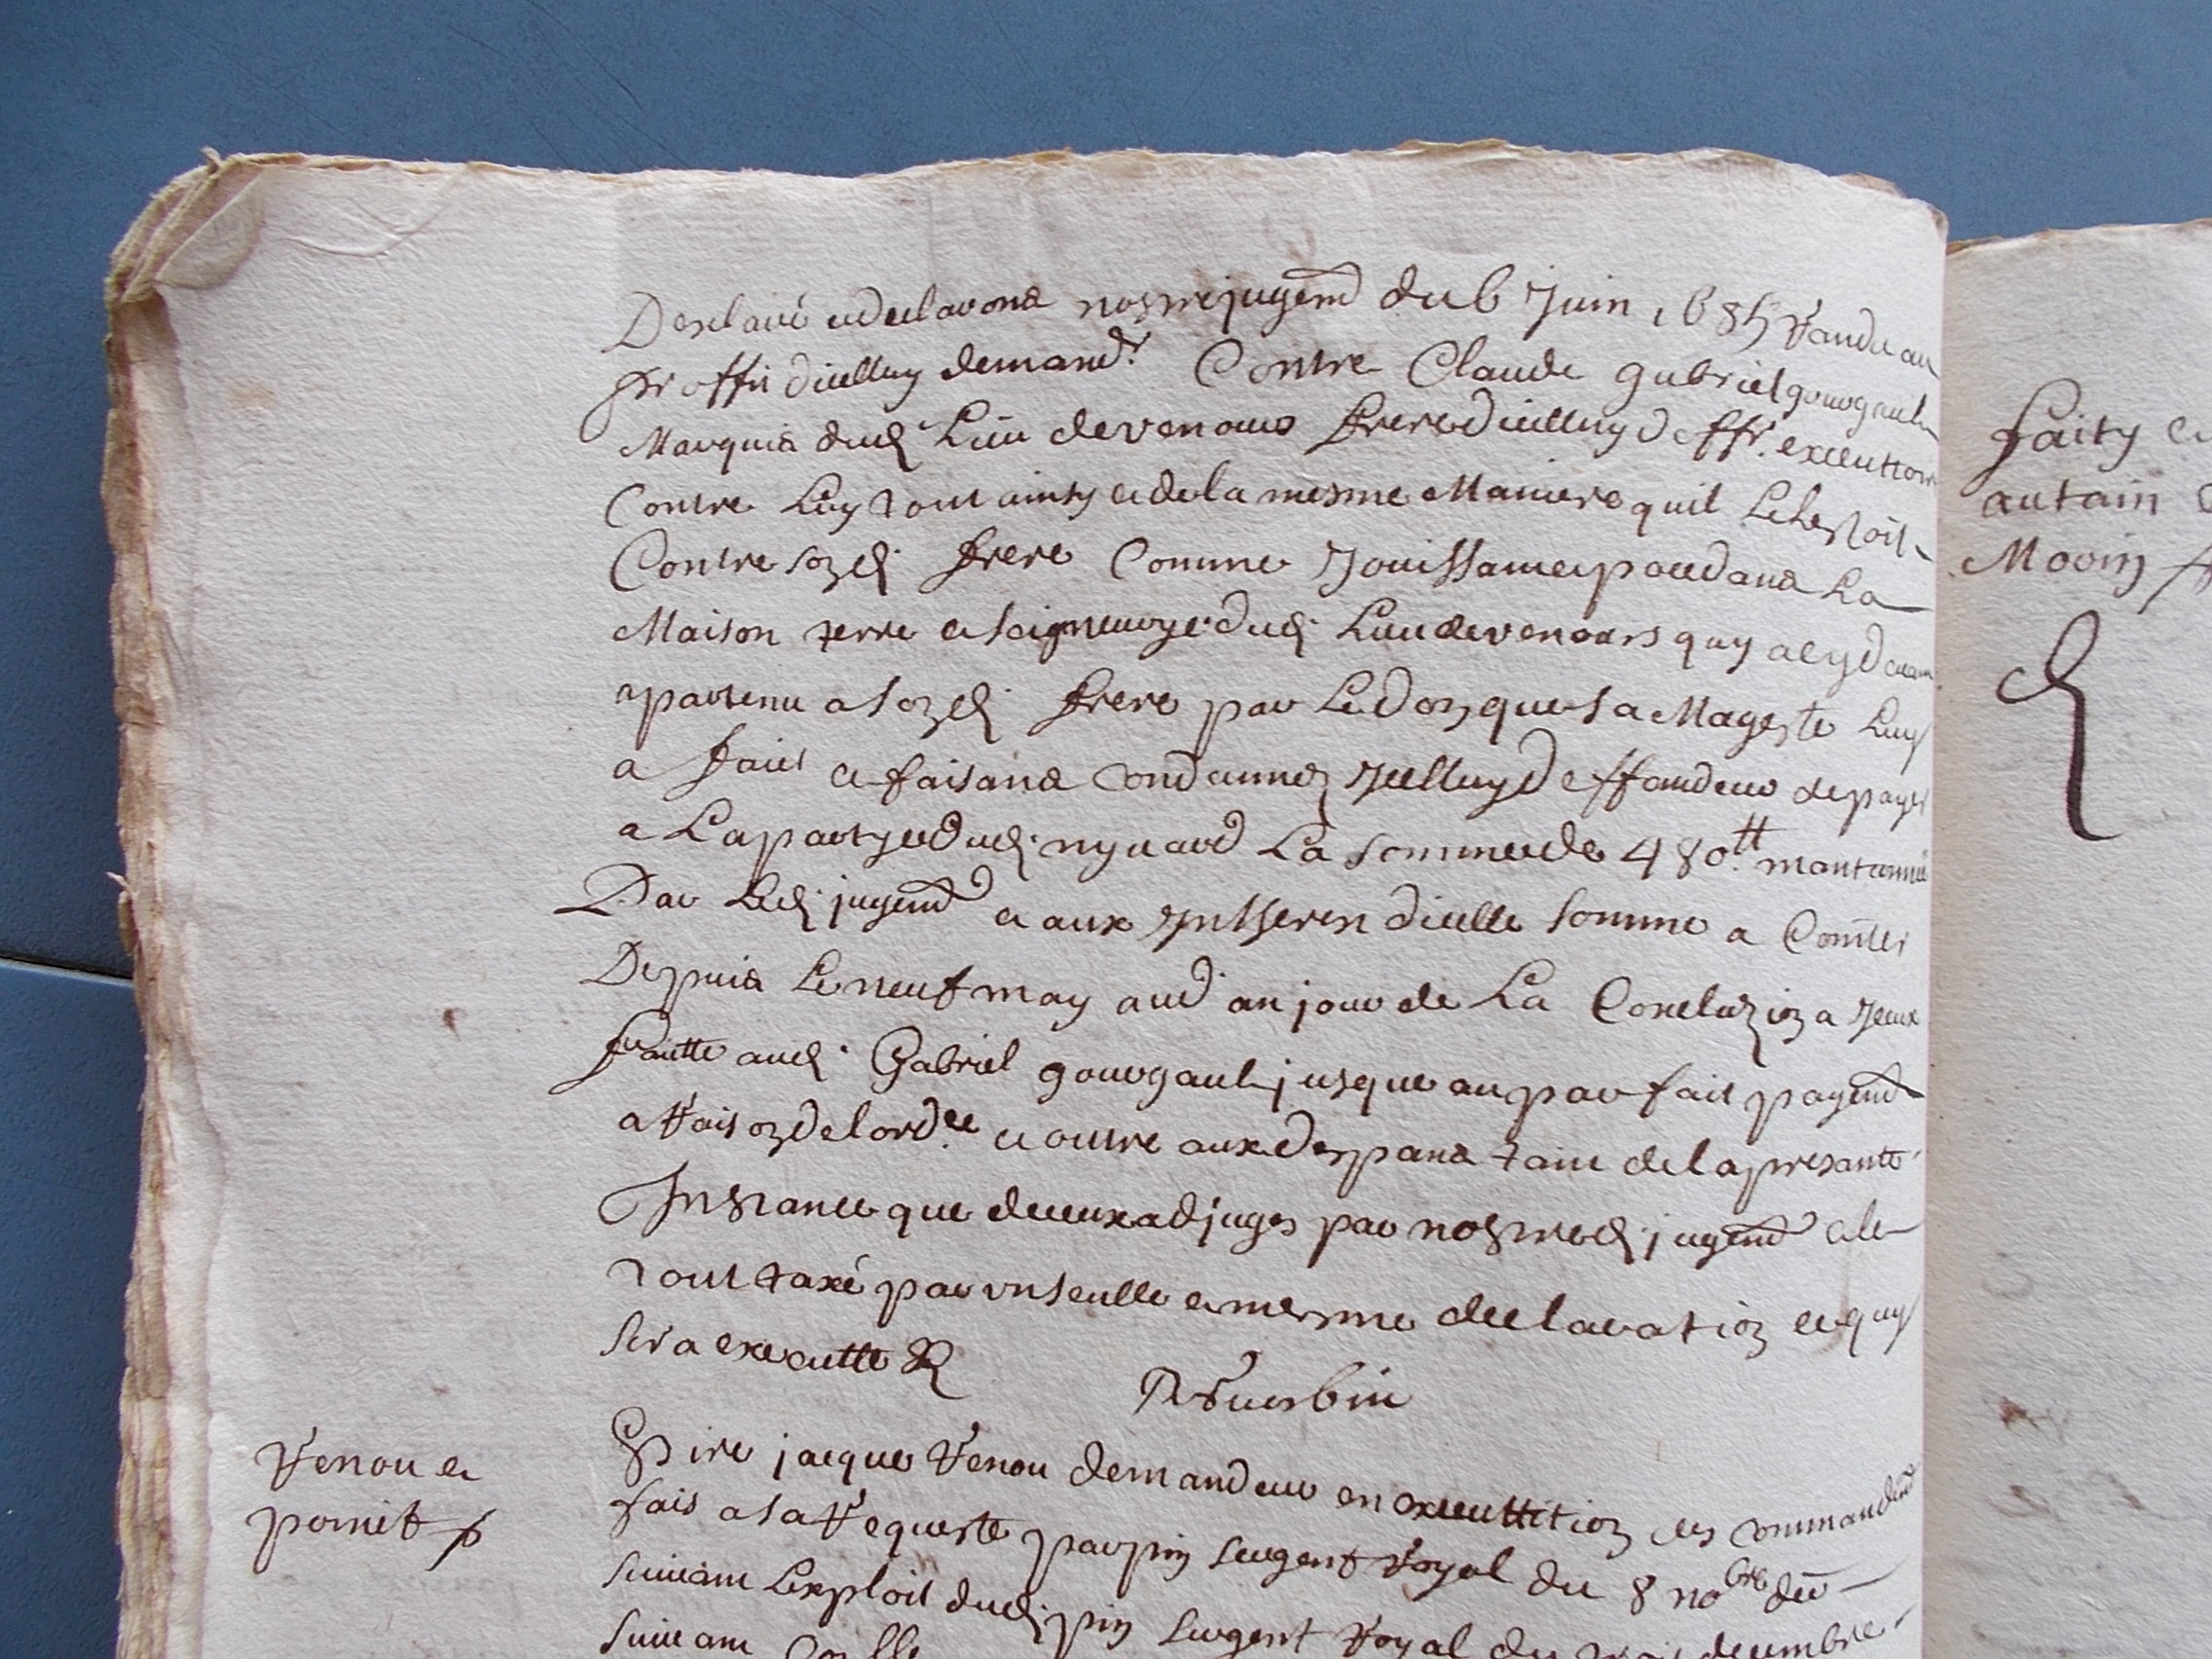 Desclaré et desclarons nostre jugemt du 6 Juin 1685 randu au
proffit dicelluy demandr. Contre Claude gabriel gourgault
Marquis dud. Lieu de venours frere dicelluy deffr. executtoire
Contre Luy tout ainsy et de la mesme Maniere quil Lestoit
Contre sond. frere Comme Jouissant et possedans La
Maison terre et seigneurye dud. Lieu de venours quy a cy devant
apartenu a sond. frere par Le don que sa Mageste Luy
a fait ce faisans condannez Jcelluy deffandeur de payer
a La partye dud. nyvard La somme de 480tt. mantionnée
Par Led. jugemt et aux Intherets dicelle somme a Comter
Depuis Le neuf may aud an jour de La Concluzion a Jceux
faitte aud. Gabriel gourgault jusque au parfait payemt
a raison de lordce. et outre aux despans tant de la presante
Instance que de ceux adjuges par nostred. jugemt et le
tout taxé par un seulle et mesme declaration ce quy
sera executté
Sire jacque renou demandeur en executtition des commandemt
fait a sa requeste par pin sergent royal du 8 nobre der
suivant Lexploit dud. pin sergent royal du trois decembre
suivant
renou et
pomet p
faits et
autain
Morin